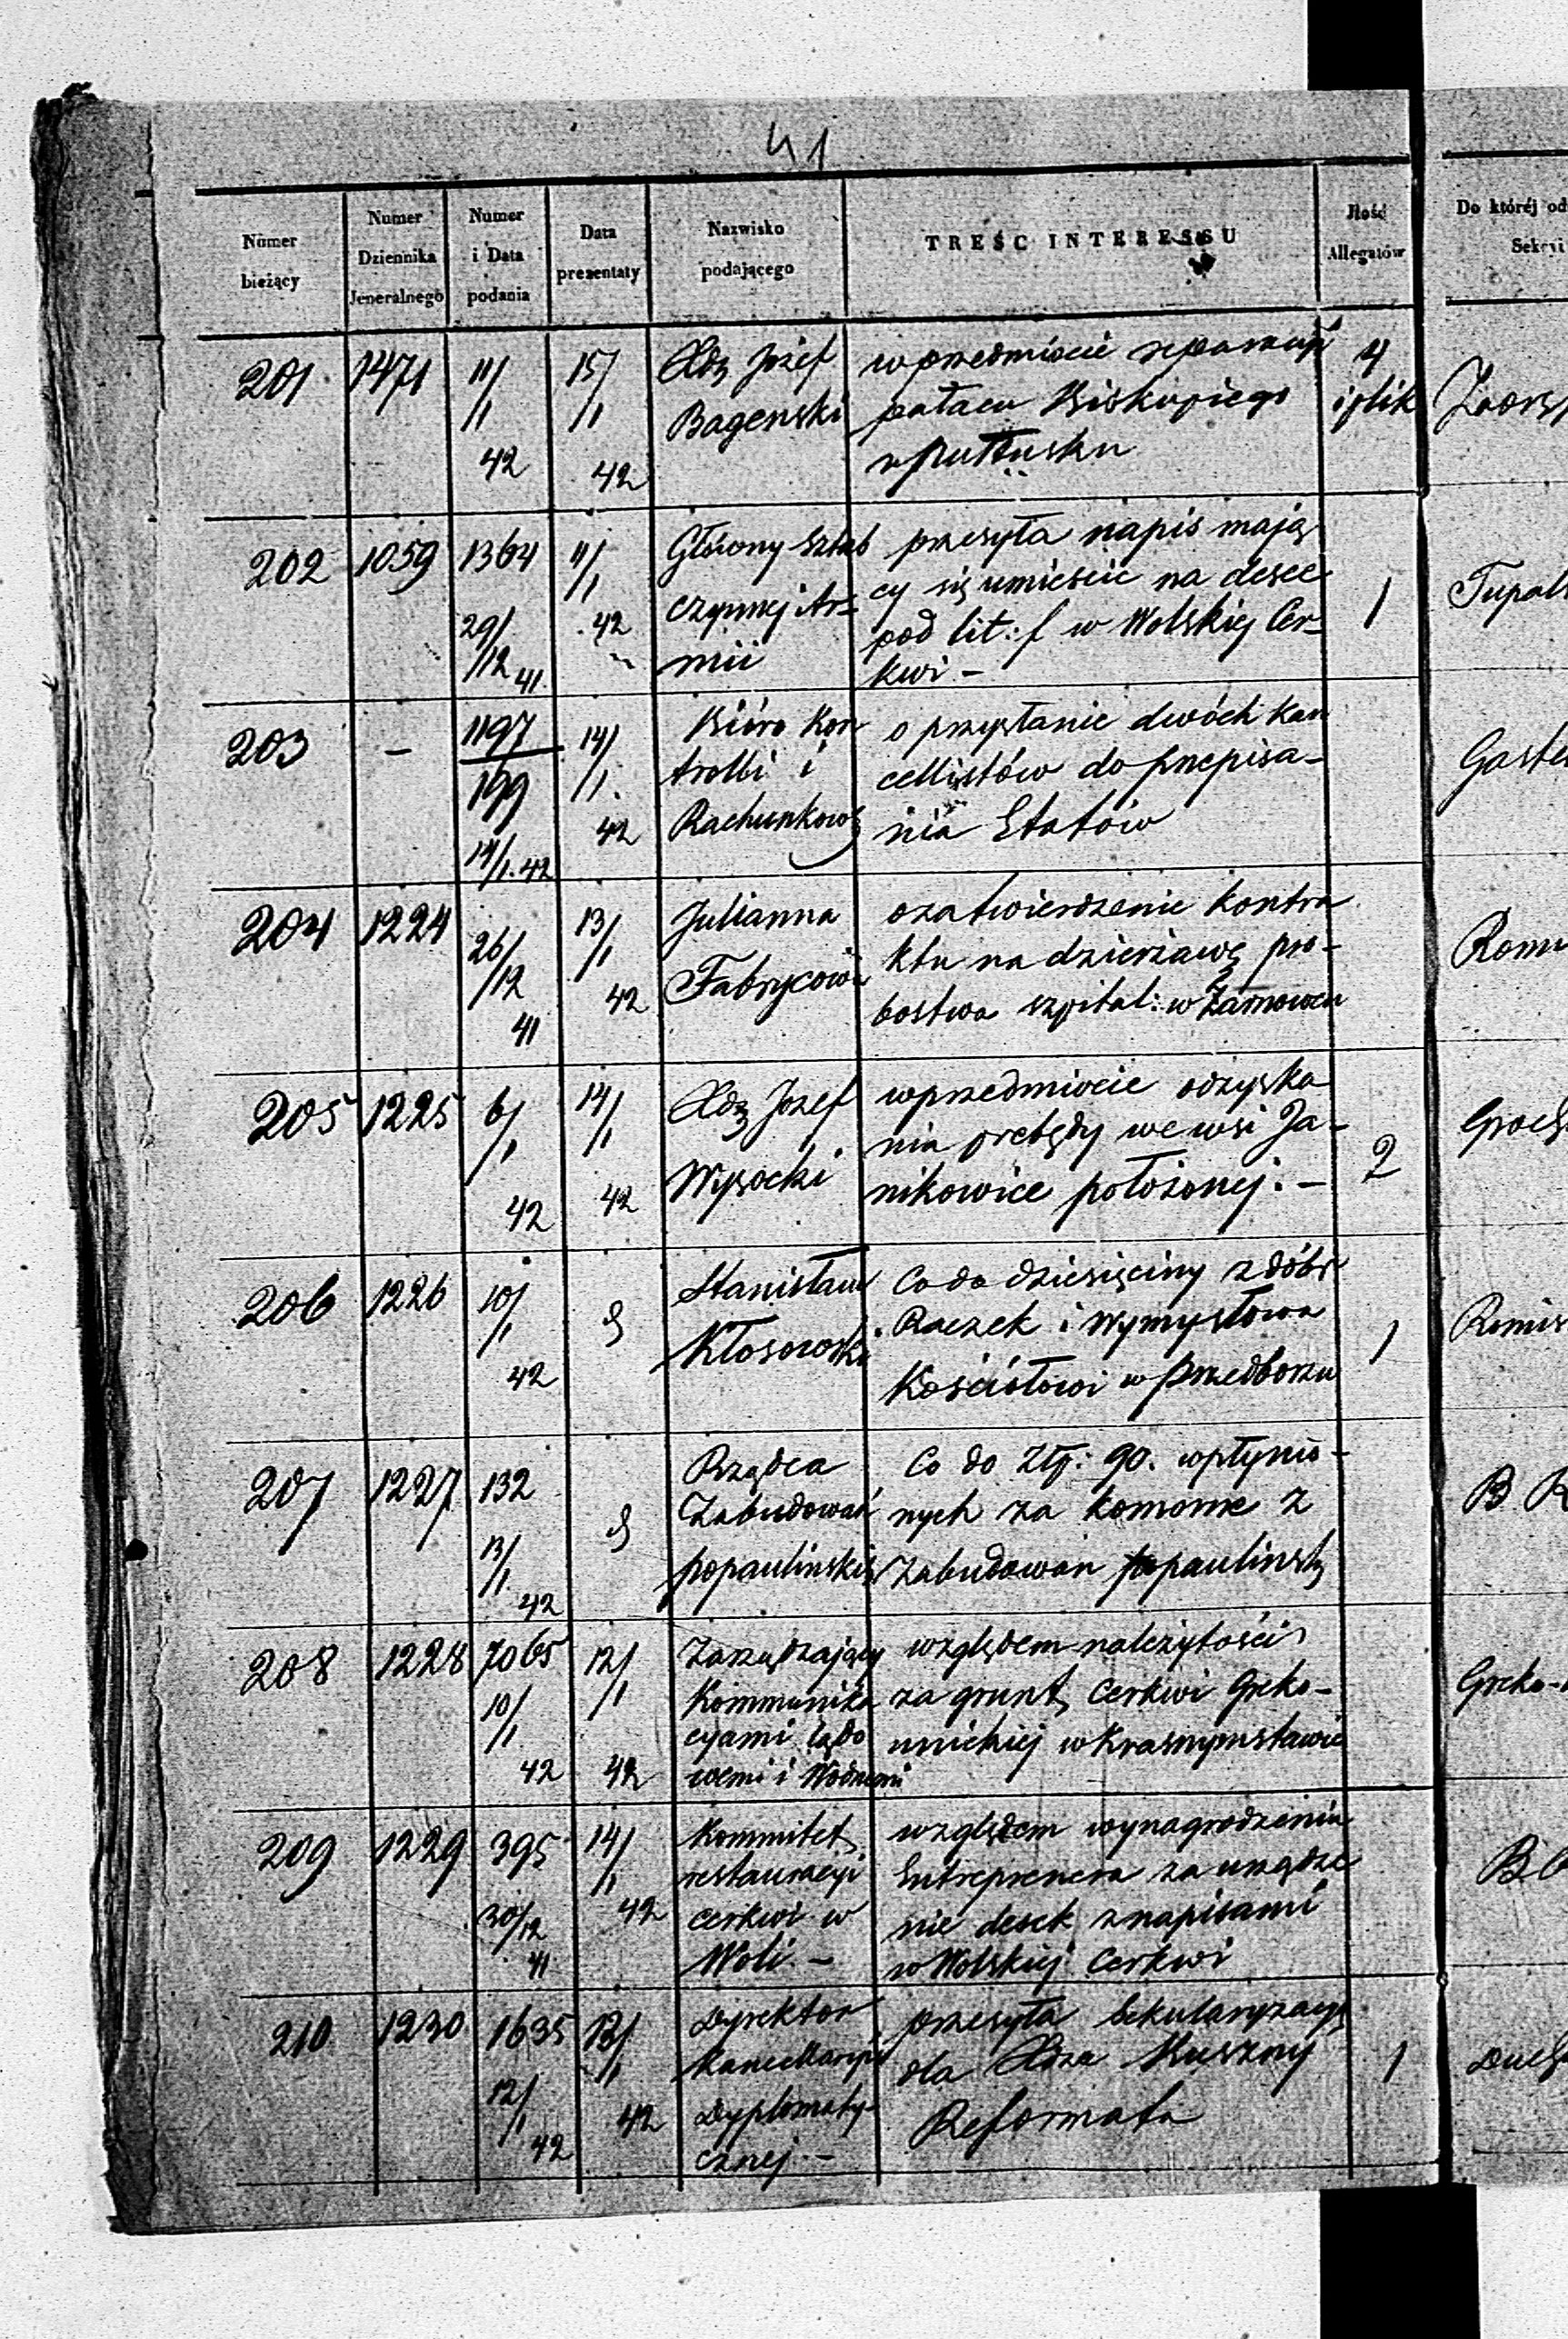 41
Numer bieżący
Numer Dziennika Jeneralnego
Numer i Data podania
Data prezentaty
Nazwisko podającego
TREŚĆ INTERESSU
Ilość Allegatów
Do której od
Sekcyi
201 1471 11/1 42 15/1 42
Xdz Józef
Bagenski
w przedmiocie reparacyi
pałacu Biskupiego
w Pułtusku
4
i plik
202 1059 1364 29/12 41 11/1 42
Główny Sztab
czynnej Ar-
mii
przesyła napis mają
cy się umieścić na desce
pod lit: f w Wolskiej Cer-
kwi –
1
203 – 1197/199 14/1. 42 14/1. 42
Bióro Kon
trolli i
Rachunkow
o przysłanie dwóch kan
cellistów do przepisa-
nia Etatów
204 1224 26/12 41 13/1 42
Julianna
Fabrycowa
o zatwierdzenie kontra
ktu na dzierżawę pro-
bostwa szpital: w Żarnowcu
205 1225 6/1 42 14/1 42
Xdz Jozef
Wysocki
w przedmiocie odzyska
nia prebędy we wsi Ja-
nikowice położonej. –
2
206 1226 10/1 42
Stanisław
Kłosowski
Co do dziesięciny z dóbr
Raczek i Wymysłowa
Kościołowi w Przedborzu
1
207 1227 132 13/1 42
Rządca
Zabudowań
popaulinskich
Co do Złp: 90. wpłynio-
nych za komorne z
Zabudowań popaulinsk
B
208 1228 7065 10/1 42 12/1 42
Zarządzający
Kommunika
cyami lądo
wemi i Wodnemi
względem należytości
za grunt Cerkwi Greko-
unickiej w Krasnymstawie
Greko-
209 1229 395 30/12 41 14/1 42
Kommitet
restauracyi
cerkwi w
Woli. –
względem wynagrodzenia
Entreprenera za urządze
nie desek z napisami
w Wolskiej Cerkwi
210 1230 1635 12/1 42 13/1 42
Dyrektor
Kancellaryi
Dyplomaty-
cznej. –
przesyła Sekularyzacyę
dla Xdza Kuszny
Reformata
1